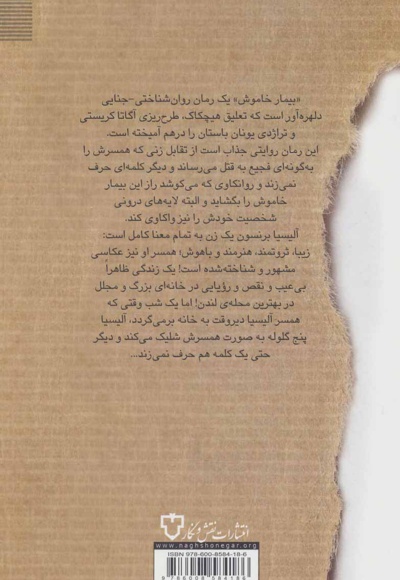 «بیمار خاموش» یک رمان روان‌شناختی-جنایی
دلهره‌آور است که تعلیق هیچکاک، طرح‌ریزی آگاتا کریستی
و تراژدی یونان باستان را درهم آمیخته است.
این رمان روایتی جذاب است از تقابل زنی که همسرش را
به‌گونه‌ای فجیع به قتل می‌رساند و دیگر کلمه‌ای حرف
نمی‌زند و روانکاوی که می‌کوشد راز این بیمار
خاموش را بگشاید و البته لایه‌های درونی
شخصیت خودش را نیز واکاوی کند.
آلیسیا برنسون یک زن به تمام معنا کامل است:
زیبا، ثروتمند، هنرمند و باهوش؛ همسر او نیز عکاسی
مشهور و شناخته‌شده است! یک زندگی ظاهراً
بی‌عیب و نقص و رؤیایی در خانه‌ای بزرگ و مجلل
در بهترین محله‌ی لندن! اما یک شب وقتی که
همسر آلیسیا دیروقت به خانه برمی‌گردد، آلیسیا
پنج گلوله به صورت همسرش شلیک می‌کند و دیگر
حتی یک کلمه هم حرف نمی‌زند...
انتشارات نقش و نگار
www.naghshonegar.org
ISBN 978-600-8584-18-6